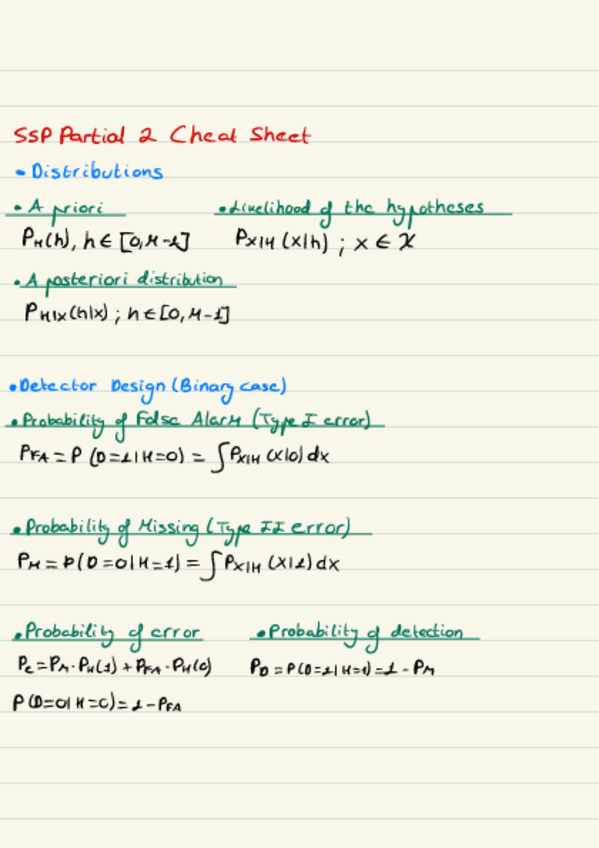 SSP Partial 2 Cheat Sheet
• Distributions
• A priori • Likelihood of the hypotheses
P_H(h), h ∈ [0, M-1] P_X|H (x|h) ; x ∈ X
• A posteriori distribution
P_H|X (h|x) ; h ∈ [0, M-1]
• Detector Design (Binary case)
• Probability of False Alarm (Type I error)
P_FA = P (D=1 | H=0) = ∫ P_X|H (x|0) dx
• Probability of Missing (Type II error)
P_M = P(D=0 | H=1) = ∫ P_X|H (x|1) dx
• Probability of error • Probability of detection
P_e = P_M · P_H(1) + P_FA · P_H(0) P_D = P(D=1 | H=1) = 1 - P_M
P(D=0 | H=0) = 1 - P_FA